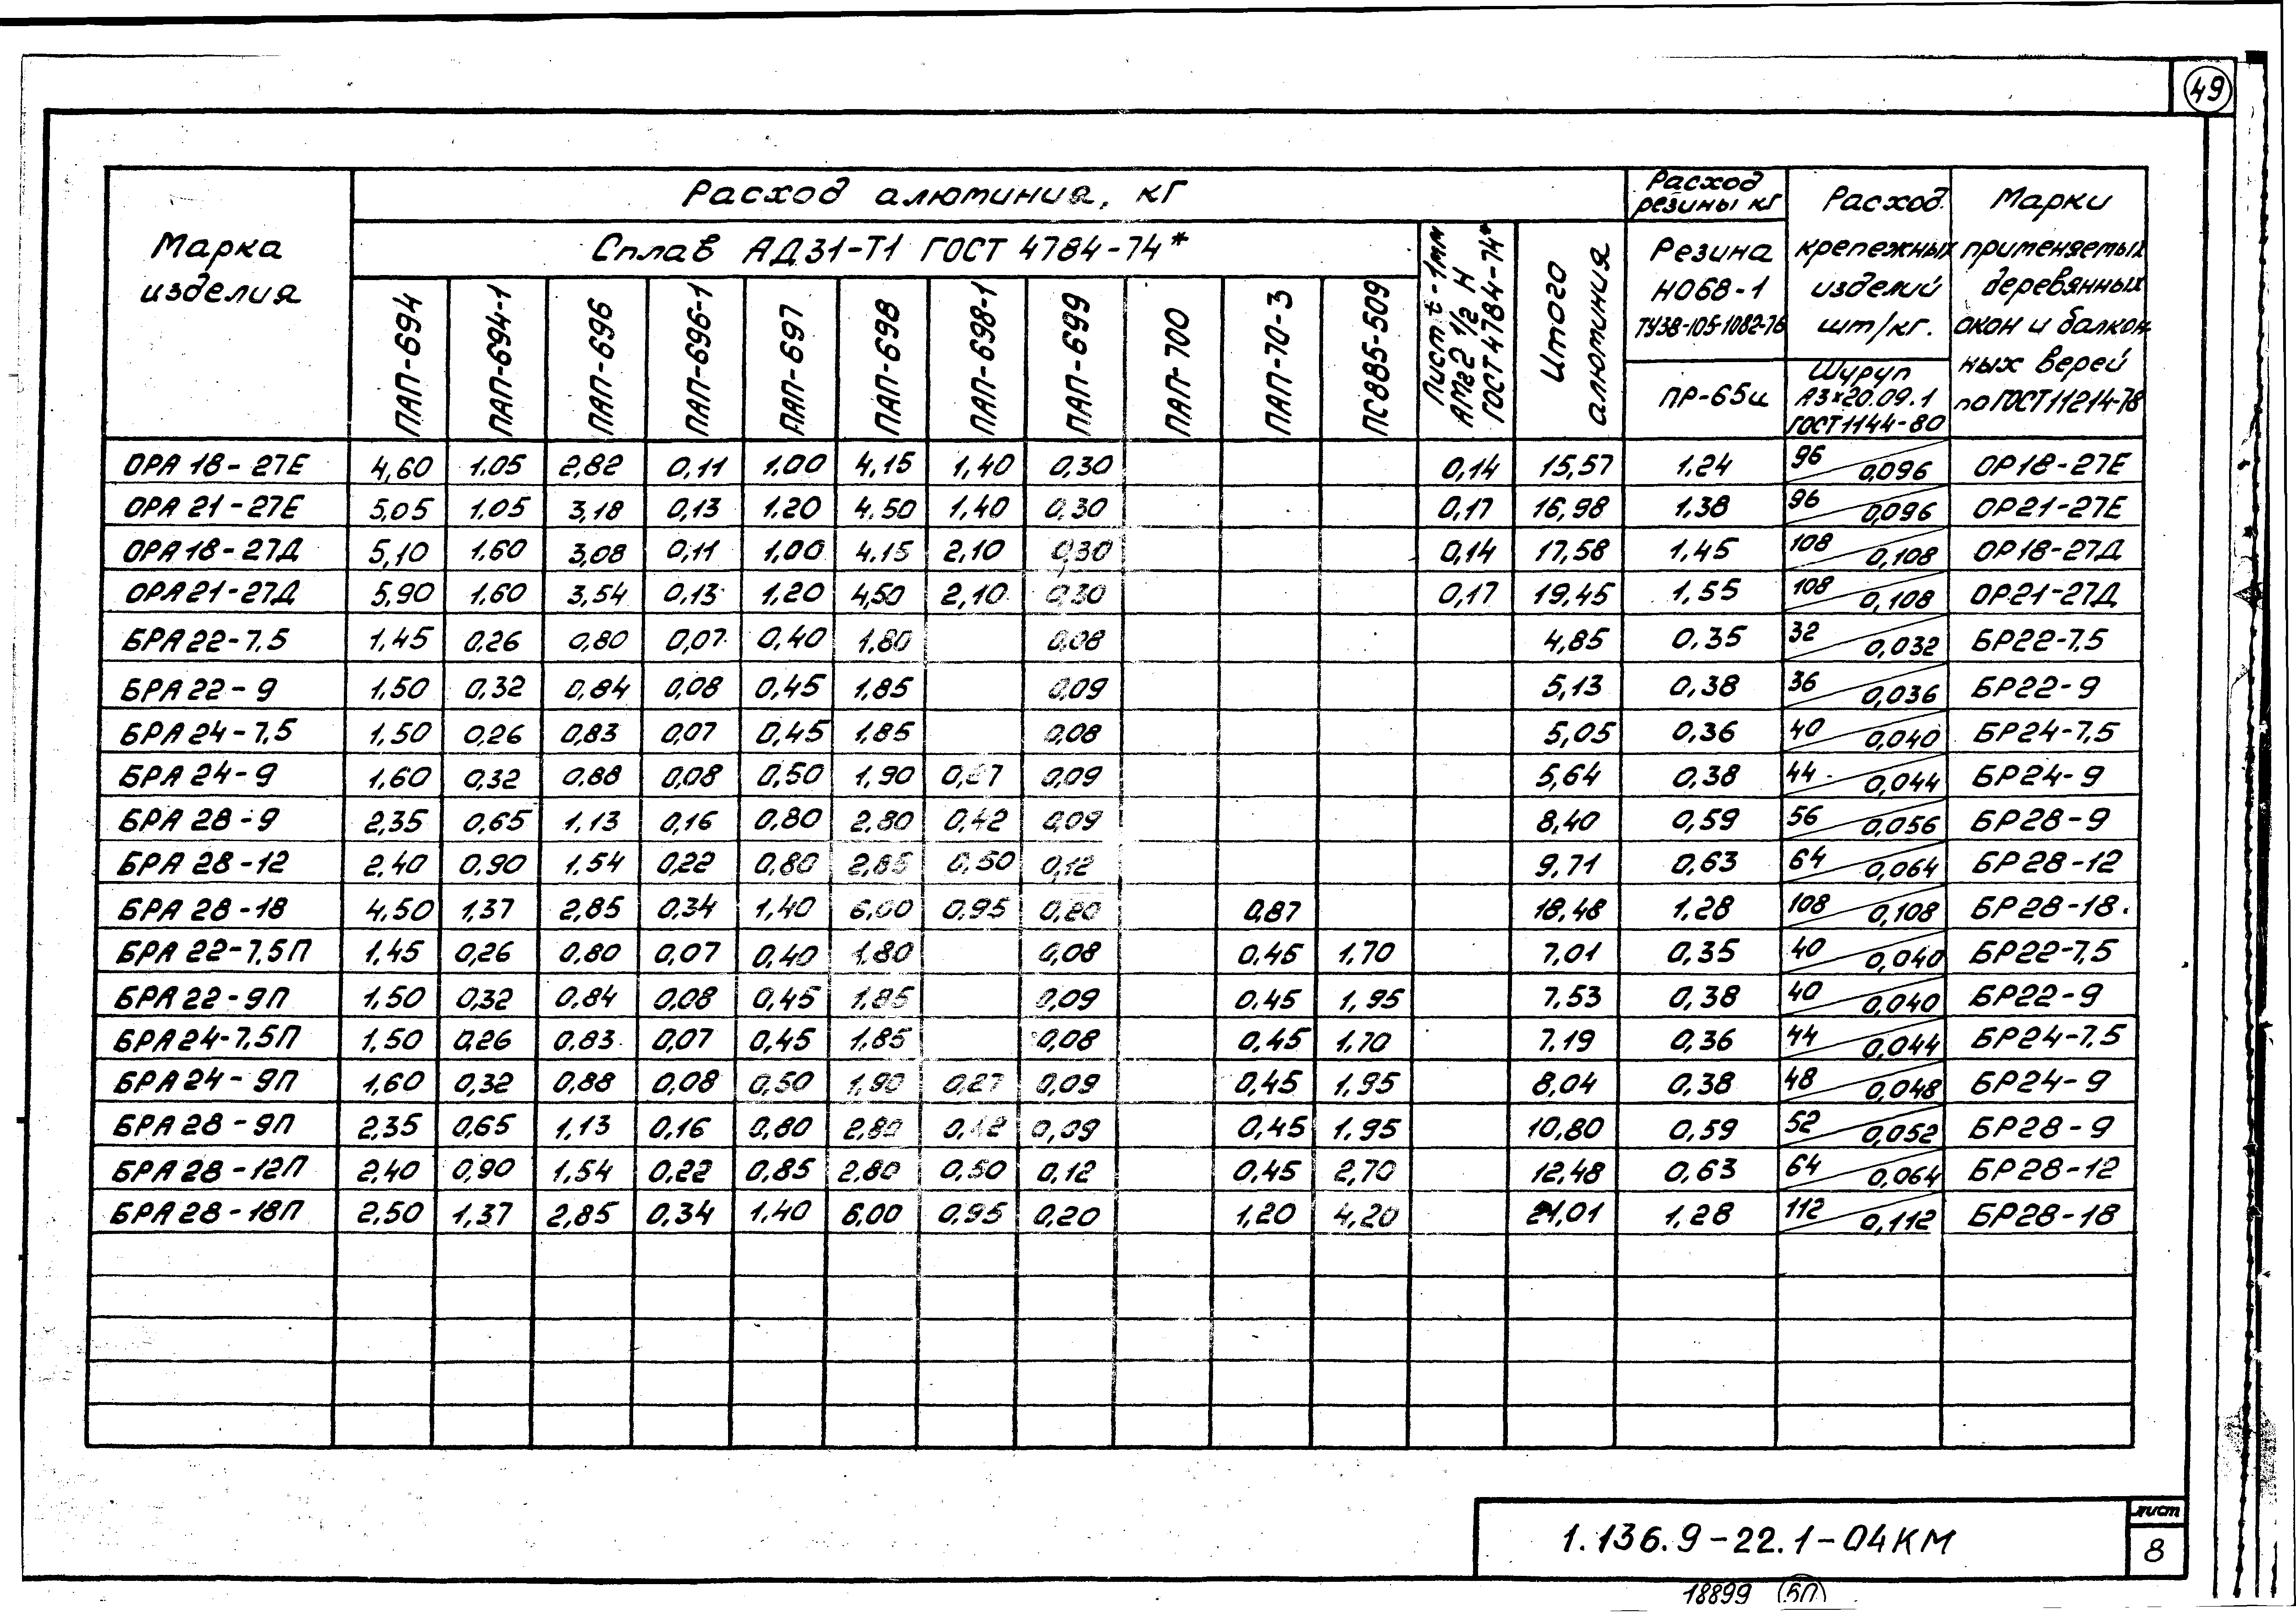 49
Расход алюминия, кг
Расход резины кг
Расход крепежных изделий шт/кг.
Марки применяемых деревянных окон и балкон- ных верей по ГОСТ 11214-78
Марка изделия
Сплав АД31-Т1 ГОСТ 4784-74*
Лист t-1мм АМг2 1/2 Н ГОСТ 4784-74*
Итого алюминия
Резина НО68-1 ТУ38-105-1082-76
ПАП-694 ПАП-694-1 ПАП-696 ПАП-696-1 ПАП-697 ПАП-698 ПАП-698-1 ПАП-699 ПАП-700 ПАП-70-3 ПС885-509
ПР-65и
Шуруп А3×20.09.1 ГОСТ 1144-80
ОРА 18-27Е 4,60 1.05 2,82 0,11 1.00 4,15 1,40 0,30 0,14 15,57 1.24 96 0,096 ОР18-27Е
ОРА 21-27Е 5,05 1.05 3,18 0,13 1.20 4.50 1,40 0,30 0,17 16,98 1,38 96 0,096 ОР21-27Е
ОРА 18-27Д 5,10 1.60 3,08 0,11 1,00 4.15 2,10 0,30 0,14 17,58 1,45 108 0,108 ОР18-27Д
ОРА 21-27Д 5,90 1.60 3,54 0,13 1,20 4,50 2,10 0,30 0,17 19,45 1,55 108 0,108 ОР21-27Д
БРА 22-7,5 1,45 0,26 0,80 0,07 0,40 1,80 0,08 4,85 0,35 32 0,032 БР22-7,5
БРА 22-9 1,50 0,32 0,84 0,08 0,45 1,85 0,09 5,13 0,38 36 0,036 БР22-9
БРА 24-7,5 1,50 0,26 0,83 0,07 0,45 1,85 0,08 5,05 0,36 40 0,040 БР24-7,5
БРА 24-9 1,60 0,32 0,88 0,08 0,50 1,90 0,27 0,09 5,64 0,38 44 0,044 БР24-9
БРА 28-9 2,35 0,65 1,13 0,16 0,80 2,80 0,42 0,09 8,40 0,59 56 0,056 БР28-9
БРА 28-12 2,40 0,90 1,54 0,22 0,80 2,85 0,50 0,12 9,71 0,63 64 0,064 БР28-12
БРА 28-18 4,50 1,37 2,85 0,34 1,40 6,00 0,95 0,20 0,87 18,48 1,28 108 0,108 БР28-18.
БРА 22-7,5П 1,45 0,26 0,80 0,07 0,40 1,80 0,08 0,45 1,70 7,01 0,35 40 0,040 БР22-7,5
БРА 22-9П 1,50 0,32 0,84 0,08 0,45 1,85 0,09 0.45 1,95 7,53 0,38 40 0,040 БР22-9
БРА 24-7,5П 1,50 0,26 0,83 0,07 0,45 1,85 0,08 0.45 1,70 7.19 0,36 44 0,044 БР24-7,5
БРА 24-9П 1,60 0,32 0,88 0,08 0,50 1,90 0,27 0,09 0,45 1,95 8,04 0,38 48 0,048 БР24-9
БРА 28-9П 2,35 0,65 1,13 0,16 0,80 2,80 0,42 0,09 0,45 1,95 10,80 0,59 52 0,052 БР28-9
БРА 28-12П 2,40 0,90 1,54 0,22 0,85 2,80 0,50 0,12 0,45 2,70 12,48 0,63 64 0,064 БР28-12
БРА 28-18П 2,50 1,37 2,85 0,34 1,40 6,00 0,95 0,20 1,20 4,20 21,01 1,28 112 0,112 БР28-18
1.136.9-22.1-04КМ
лист
8
18899 50